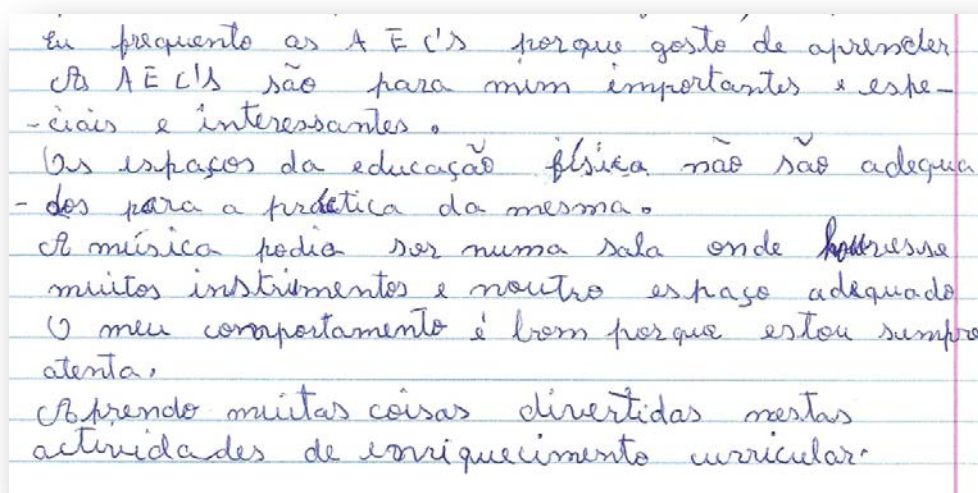 Eu frequento as A E C'S porque gosto de aprender
As AEC'S são para mim importantes e espe-
-ciais e interessantes.
Os espaços da educação física não são adequa
- dos para a práctica da mesma.
A música podia ser numa sala onde houvesse
muitos instrumentos e noutro espaço adequado
O meu comportamento é bom porque estou sempre
atenta.
Aprendo muitas coisas divertidas nestas
actividades de enriquecimento curricular.